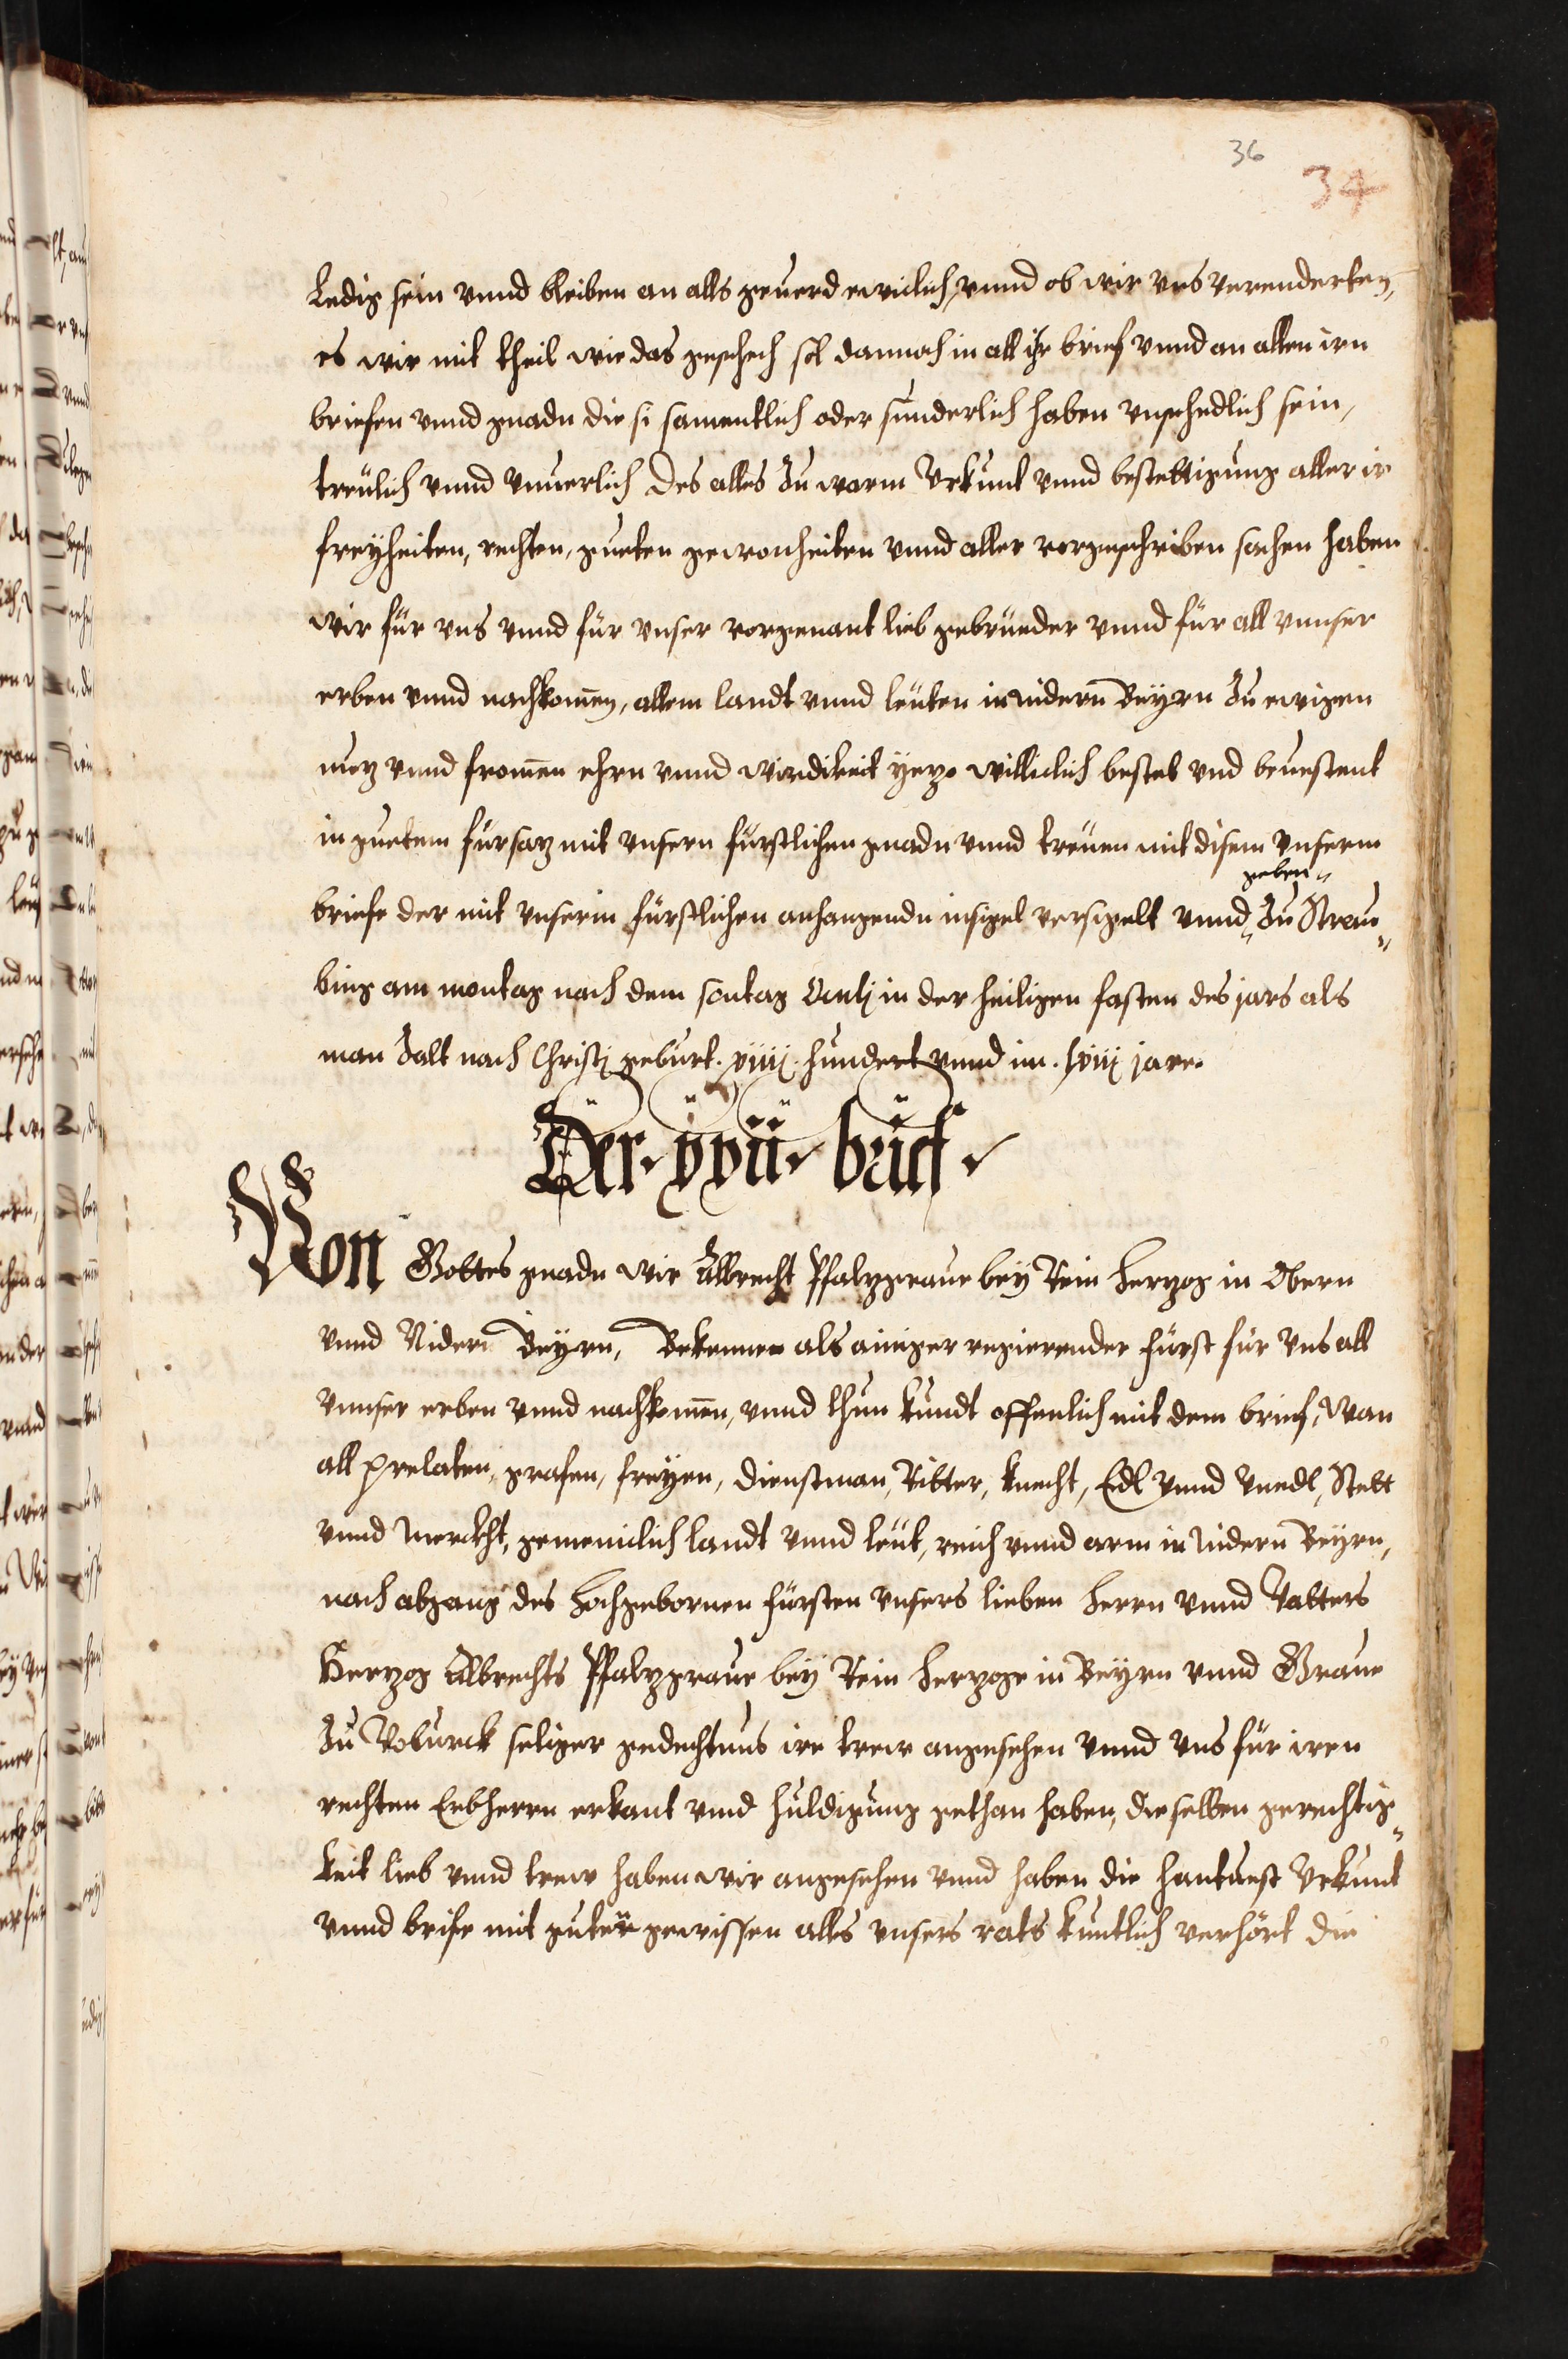 36
34
Ledig sein vnnd bleiben an alls geuerd ewiclich, vnnd ob wir vns verenderten,
es wir mit theil wie das geschech sol dannoch in all ihr brief vnnd an allen irn
briefen vnnd gnadn die si samentlich oder sunderlich haben vnschedlich sein,
treulich vnnd vnuerlich Des alles Zu warm Vrkunt vnnd bestettigung aller ir
freyheiten, rechten, gueten gewonheiten vnnd aller vorgeschriben sachen haben
wir für vns vnnd für vnser vorgenant lieb gebrueder vnnd für all vnnser
erben vnnd nachkomen, allem landt vnnd leuten in nidern Beyrn Zu ewigem
nutz vnnd fromen ehrn vnnd wirdikeit yezo williclich bestet vnd beuestent
in guetem fürsatz mit vnsern fürstlichen gnadn vnnd treuen mit disem vnserm
geben
briefe der mit vnserm fürstlichen anhangendn insigel versigelt vnnd Zu Strau
bing am montag nach dem sontag Oculj in der heiligen fasten des jars als
man Zalt nach Christj geburt. xiiij. hundert vnnd im. lxiij jare.
Der xvii brief
Von Gottes gnadn wir Albrecht Pfalzgraue bey Rein Herzog in Obern
vnnd Nidern Beyrn, Bekennen als ainiger regierender fürst für vns all
vnnser erben vnnd nachkomen, vnnd thun kundt offenlich mit dem brief, Wan
all prelaten, grafen, freyen, dienstman, Ritter, knecht, Edl vnnd vnedl, Stett
vnnd Merckht, gemeinclich landt vnnd leut, reich vnnd arm in Nidern Beyrn,
nach abgang des Hochgebornen fürsten vnsers lieben Herrn vnnd Vatters
Herzog Albrechts Pfalzgraue bey Rein Herzoge in Beyrn vnnd Graue
Zu Voburck seliger gedechtnus ire trew angesehen vnnd vns für iren
rechten Erbherrn erkant vnd huldigung gethan haben, dieselben gerechtig
keit lieb vnnd trew haben wir angesehen vnnd haben die hantuest Vrkunt
vnnd brife mit guter gewissen alls vnsers rats kuntlich verhört die